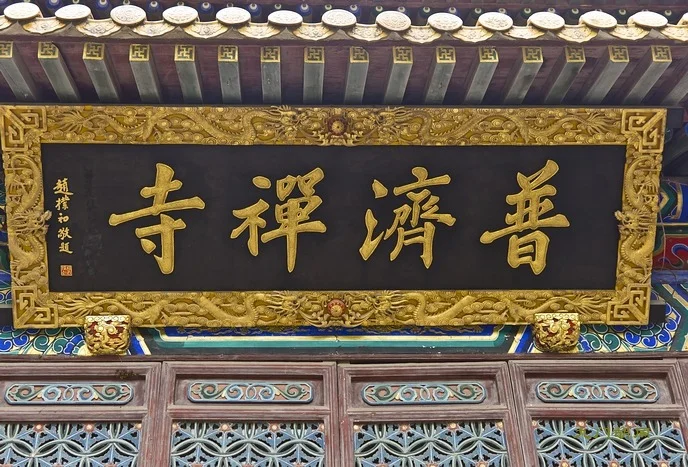 普濟禪寺
趙樸初敬題